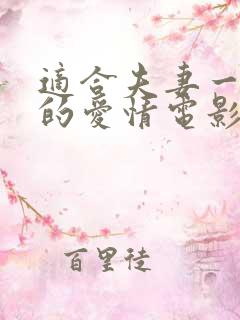 適合夫妻一
的愛情電影
百里徒